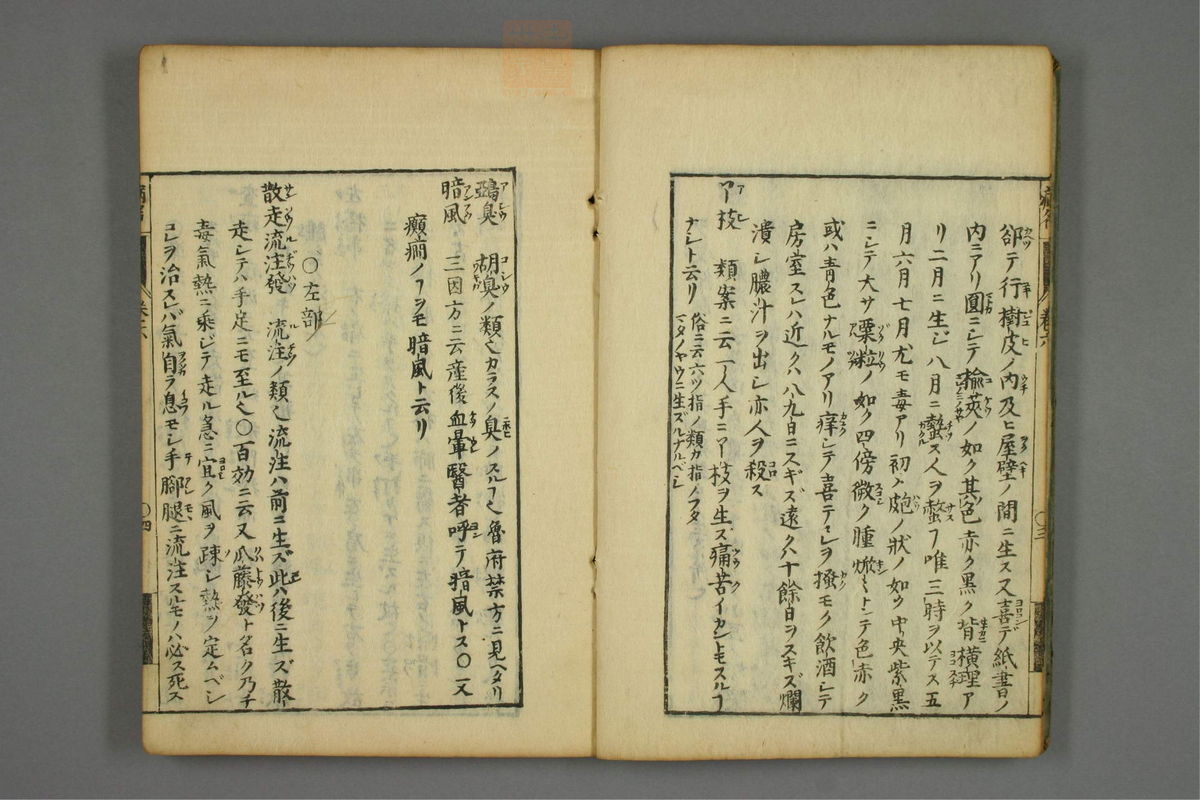 郤テ行樹皮ノ内及ヒ屋壁ノ間ニ生ス喜テ紙書ノ
内ニアリ圓ニシテ楡莢ノ如ク其色赤ク黒ク背横理ア
リ二月ニ生シ八月ニ蟄ス人ヲ螫ヿ唯三時ヲ以テス五
月六月七月尤モ毒アリ初ハ皰ノ狀ノ如ク中央紫黒
ニシテ大サ粟粒ノ如ク四傍微ク腫焮トシテ色赤ク
或ハ青色ナルモノアリ痒シテ喜テヲ搔モク飲酒シテ
房室スレハ近クハ八九日ニスキズ遠クハ十餘日ヲスキズ爛
潰シ膿汁ヲ出シ亦人ヲ殺ス
丫枝 類案ニ云一人手ニ丫枝ヲ生ス痛苦イカントモスルヿ
ナシト云リ 俗ニ云六ツ指ノ類カ指ノフタ
マタノヤウニ生ズルナルベシ
卷六
〇三
鵶臭 胡臭ノ類也カラスノ臭ノスルヿ也魯府禁方ニ見ヘタリ
暗風 三因方ニ云産後血暈醫者呼テ暗風トス〇又
癲癇ノヿヲモ暗風ト云リ
〇左部
散走流注發 流注ノ類也流注ハ前ニ生ズ此ハ後ニ生ズ散
走シテハ手足ニモ至ル也〇百効ニ云又瓜藤發ト名ク乃チ
毒氣熱ニ乘ジテ走ル急ニ宜ク風ヲ疎シ熱ヲ定ムベシ
コレヲ治スレバ氣自ラ息モシ手脚腿ニ流注スルモノハ必ス死ス
卷六
〇四